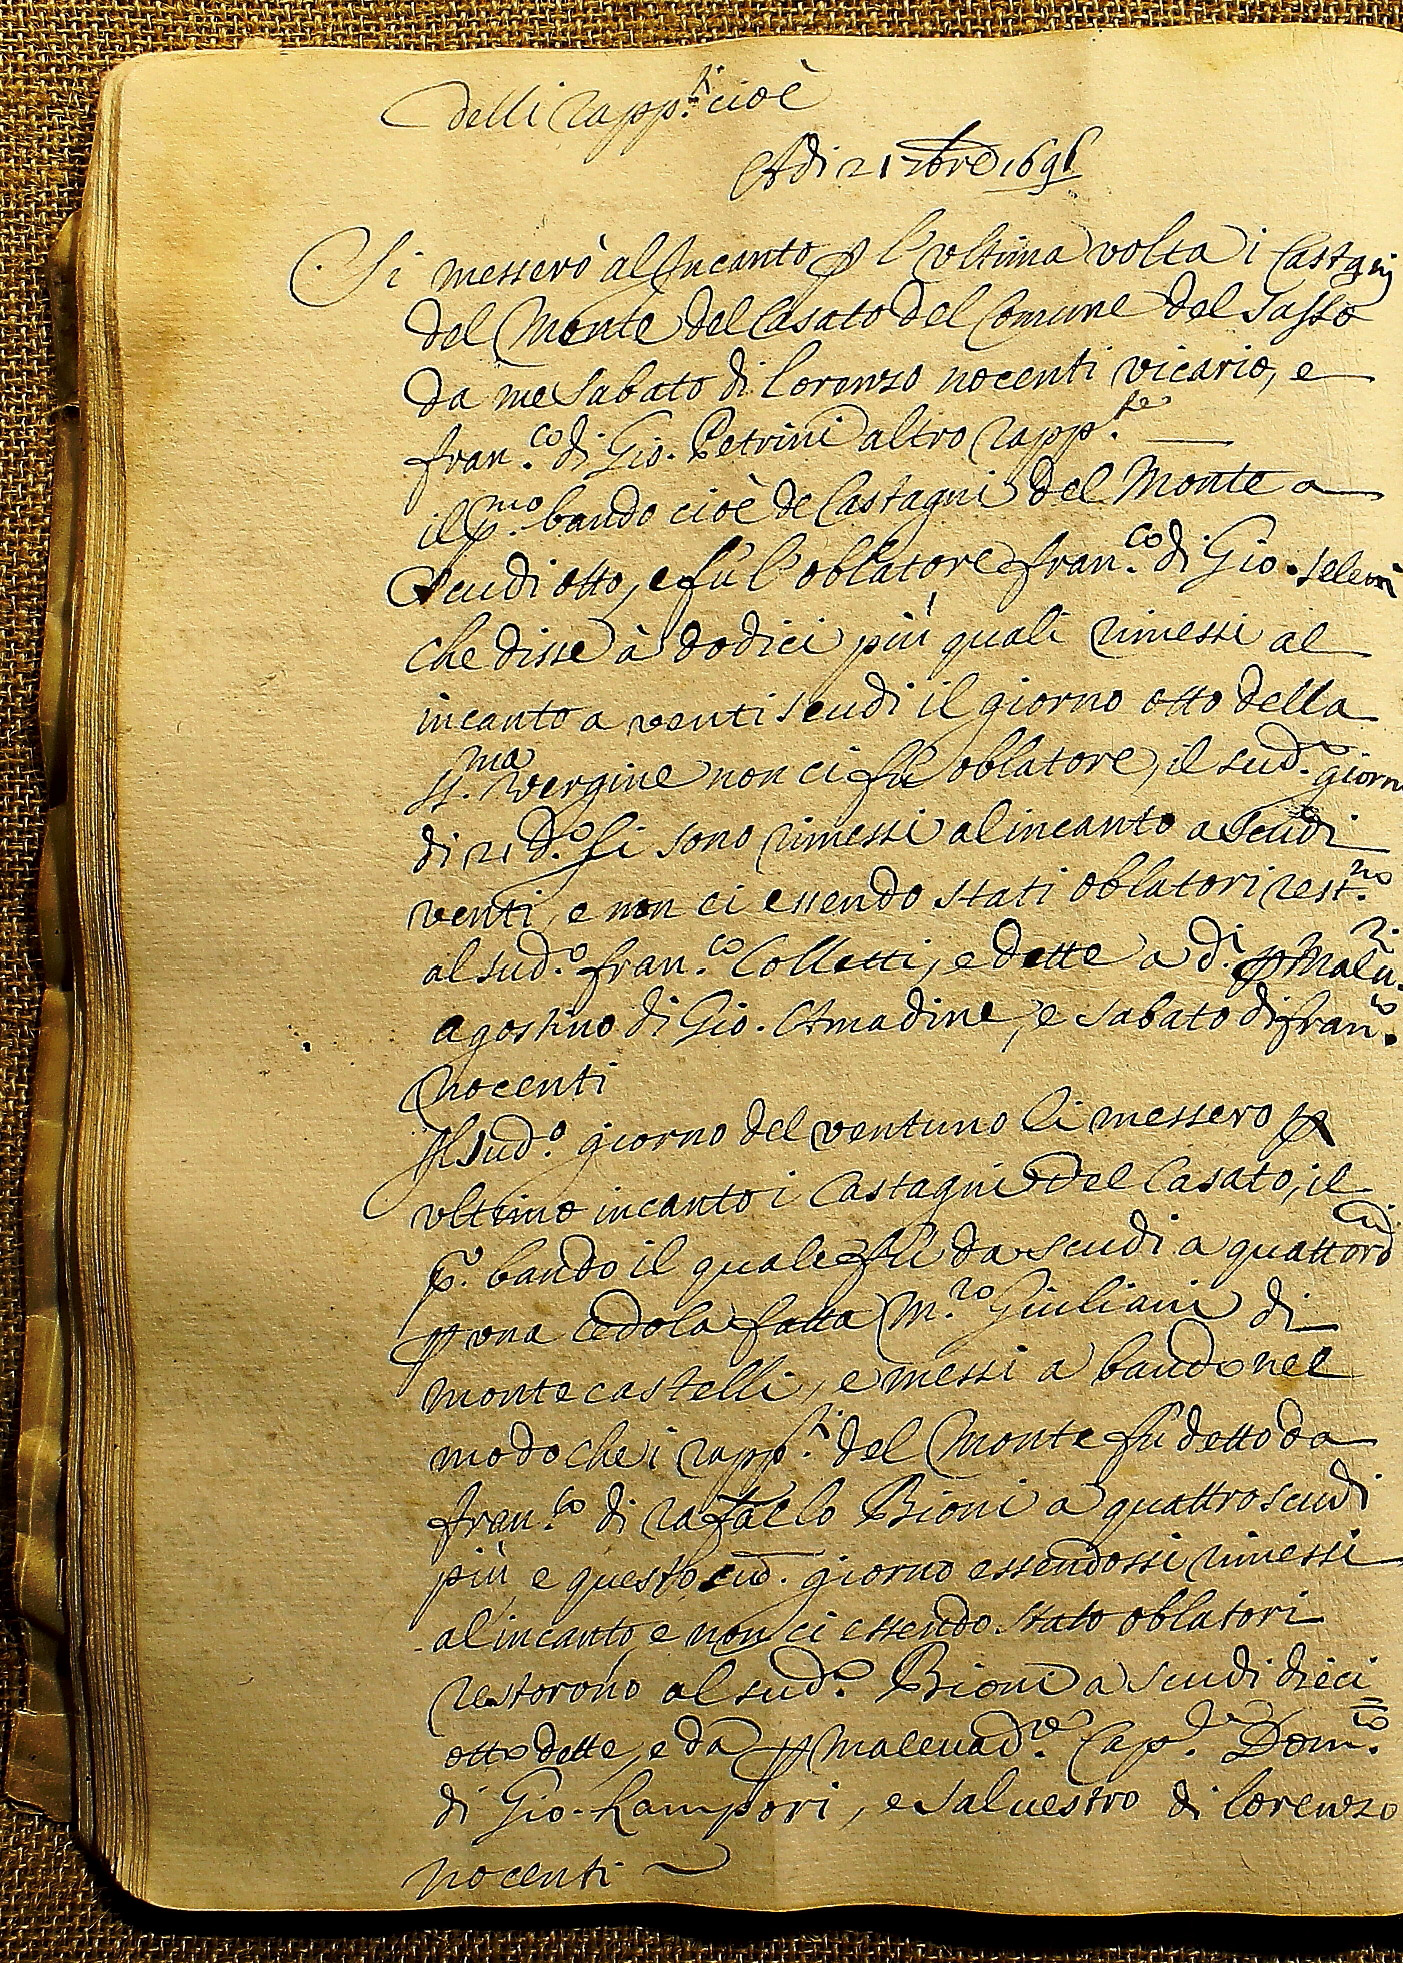 delli rapp.ti cioè
Adi 21 7bre 1691
Si messero al Incanto p l'ultima volta i Castagni
del Monte del Casato del Comune del Sasso
da me Sabato di Lorenzo nocenti vicario, e
fran.co di Gio. Petrini altro rapp.te
il p.mo bando cioè de Castagni del Monte a
Scudi otto, e fù l'oblatore fran.co di Gio.
che disse à dodici più quali rimessi al
incanto a venti scudi il giorno otto della
SS.ma vergine non ci fù oblatore, il sud.o giorno
di 21 d.o si sono rimessi al incanto a Scudi
venti, e non ci essendo stati oblatori rest.no
al sud.o fran.co Colletti, e dette a d.i p Maleu.ri
agostino di Gio. Amadine, e sabato di fran.co
nocenti
Il sud.o giorno del ventuno li messero p
vltimo incanto i Castagni del Casato, il
p.o bando il quale fù da scudi a quattordici
p vna cedola fatta M.ro Giuliani di
montecastelli, e messi a bando nel
modo che i rapp.ti del Monte fù detto da
fran.co di rafaelo Bioni a quattro scudi
più e questo sud. giorno essendossi rimessi
al'incanto e non ci essendo stato oblatori
restorono al sud.o Bioni a scudi dieci
otto dette, e da p maleuad.re Cap. Dom.co
di Gio. Lampori, e saluestro di lorenzo
nocenti